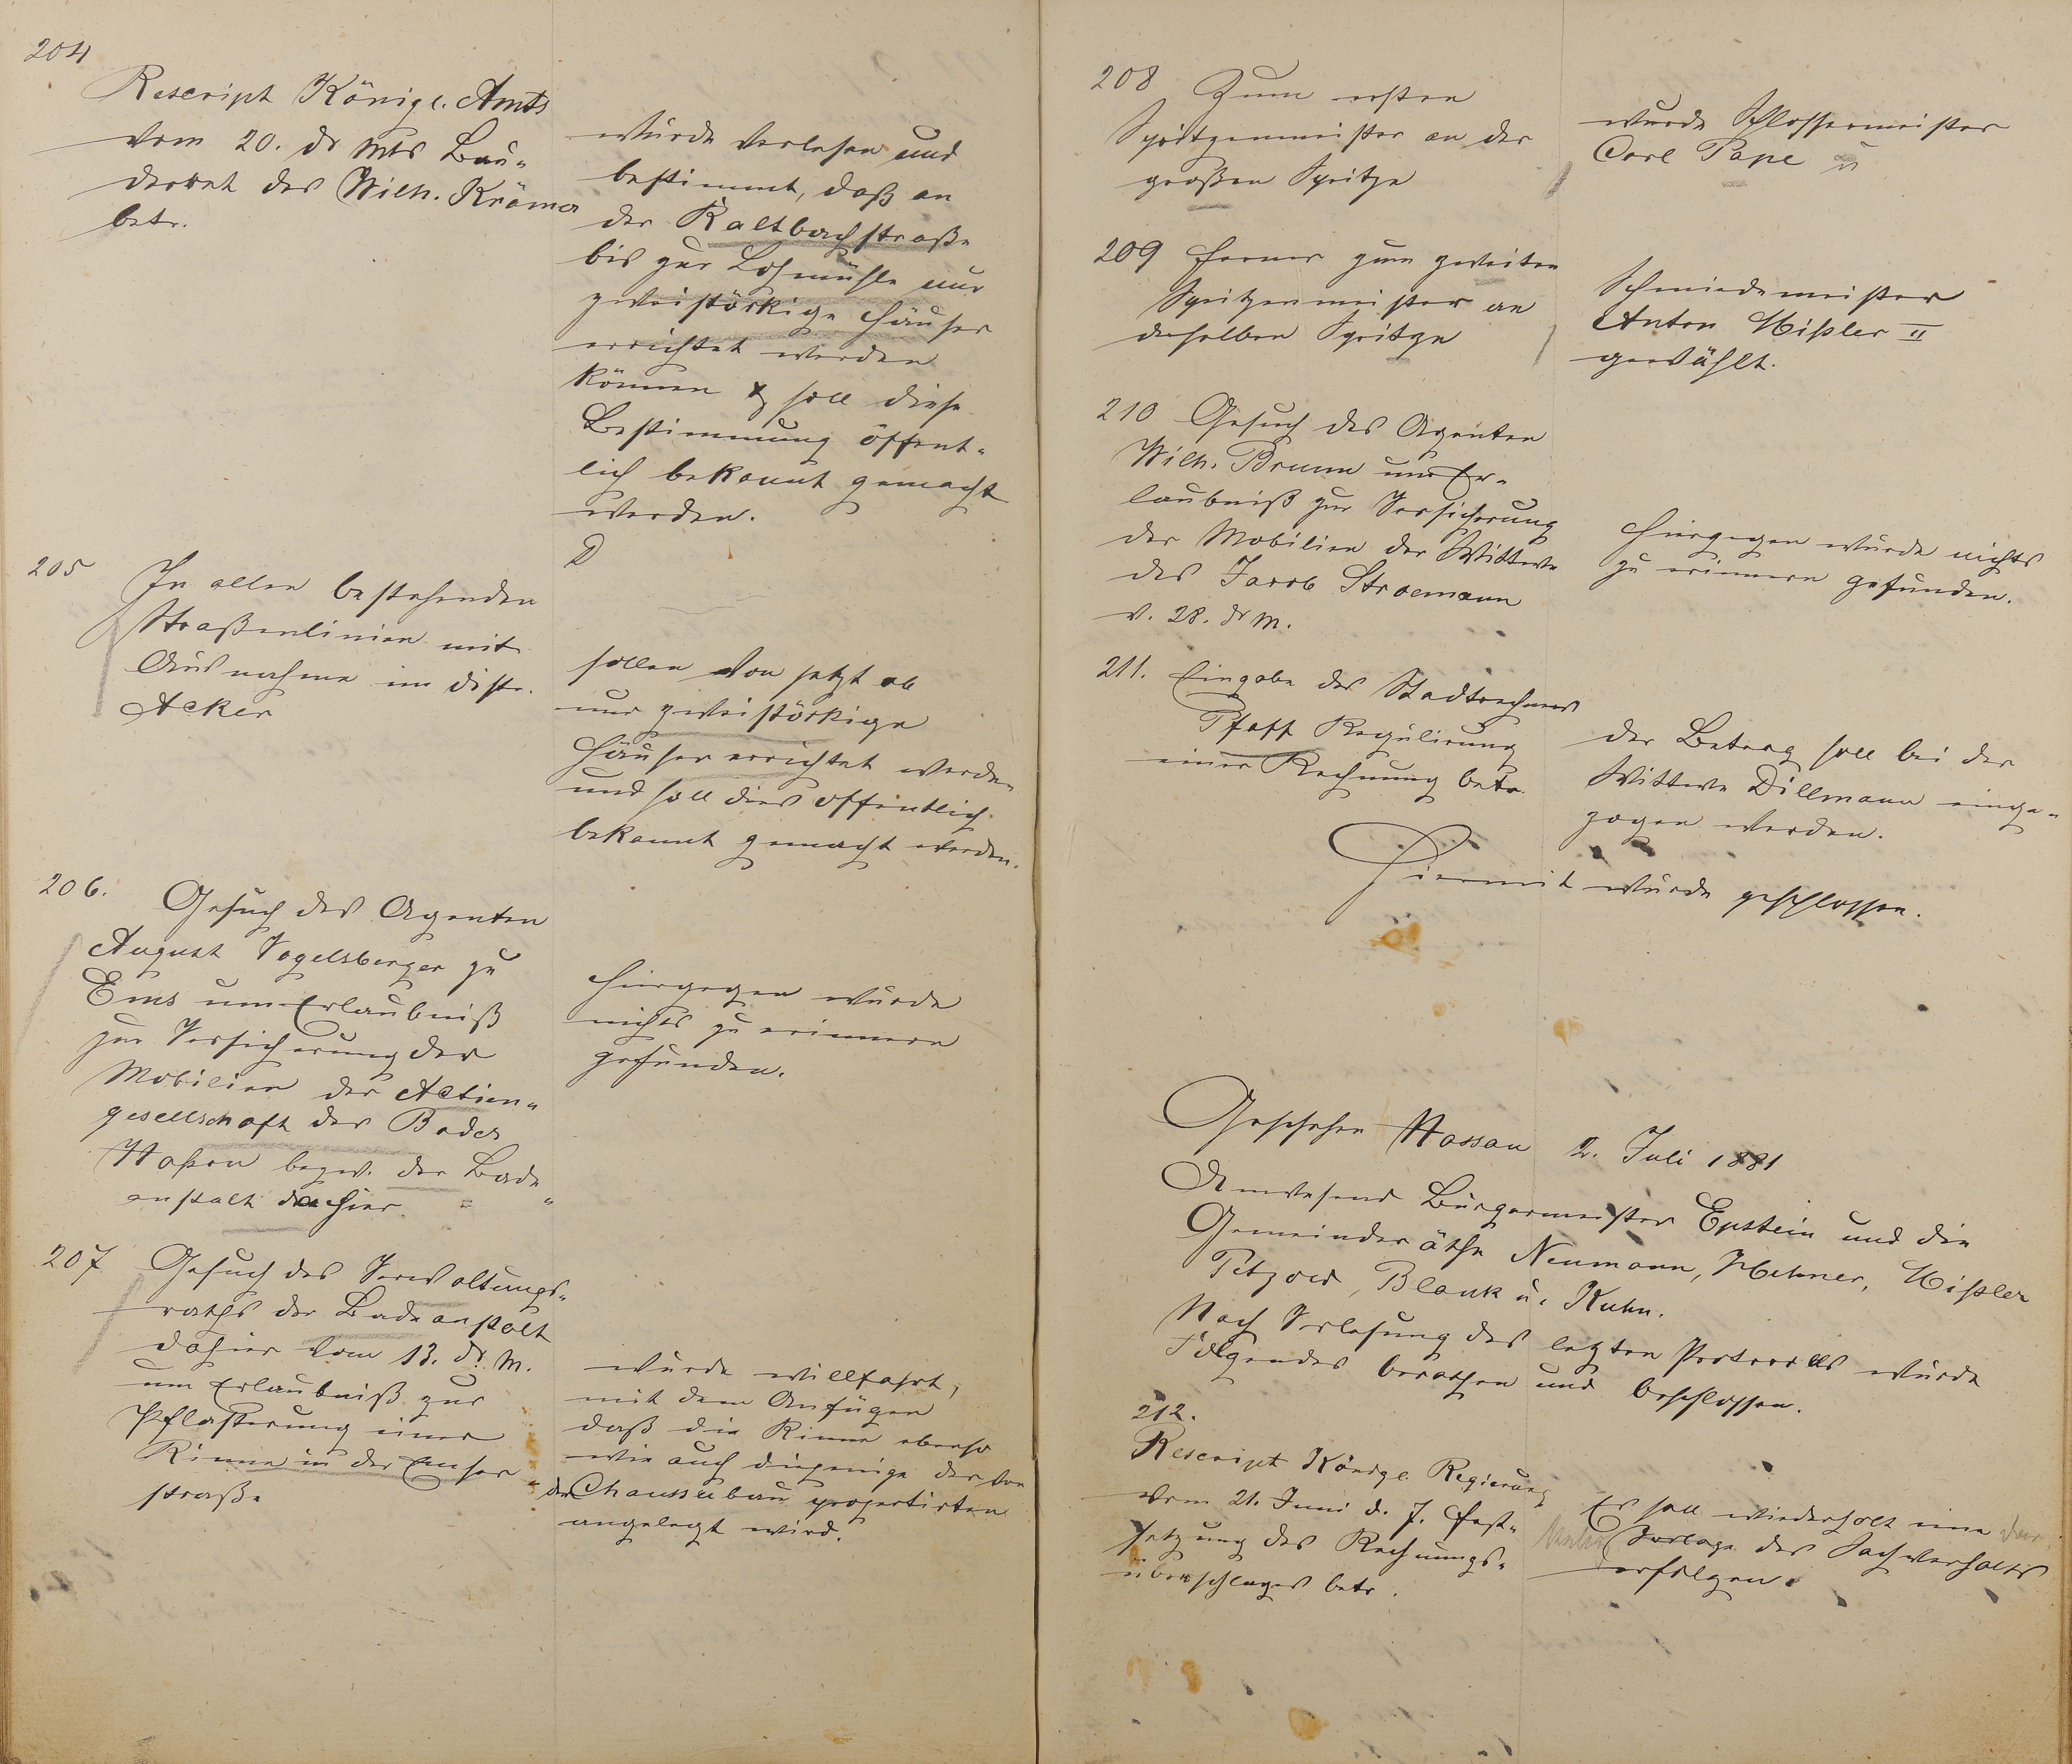 204
Rescript Königl. Amts
vom 20. ds Mts Bau-
derret des Wilh. Krämer
betr.
wurde verlesen und
bestimmt, daß an
der Kaltbachstraße
bis zur Lohmühle nur
zweistöckige Häuser
errichtet werden
können & soll diese
Bestimmung öffent-
lich bekannt gemacht
werden.
205
In allen bestehenden
Straßenlinien mit
Ausnahme im Distr.
Acker
sollen von jetzt ab
nur zweistöckige
Häuser errichtet werden
und soll dies öffentlich
bekannt gemacht werden.
206.
Gesuch des Agenten
August Vogelsberger zu
Ems um Erlaubniß
zur Versicherung der
Mobilien der Actien-
gesellschaft des Bades
Naßau bezw. der Bade-
anstalt dahier
Hiergegen wurde
nichts zu erinnern
gefunden.
207
Gesuch des Verwaltungs-
raths der Badeanstalt
dahier vom 13. ds. M.
um Erlaubniß zur
Pflasterung einer
Rinne in der Emser
straße
wurde willfahrt,
mit dem Anfügen
daß die Rinne ebenso
wie auch diejenige der von
der Chausseebau projectirten
angelegt wird.
208 Zum ersten
Spritzenmeister an der
großen Spritze
wurde Schlossermeister
Carl Pape u
209 Ferner zum zweiten
Spritzenmeister an
derselben Spritze
Schmiedemeister
Anton Mißler II
gewählt.
210 Gesuch des Agenten
Wilh. Brunn um Er-
laubniß zur Versicherung
der Mobilien der Wittwe
des Jacob Stroemann
v. 28. ds M.
Hiergegen wurde nichts
zu erinnern gefunden.
211. Eingabe des Stadtrechners
Pfaff Regulirung
einer Rechnung betr.
Der Betrag soll bei der
Wittwe Dillmann einge-
zogen werden.
Hiermit wurde geschlossen.
Geschehen Nassau 2. Juli 1881
Anwesend Bürgermeister Epstein und die
Gemeinderäthe Neumann, Mehmer, Mißler
Petzold, Blank u. Kuhn.
Nach Verlesung des letzten Protocolls wurde
Folgendes berathen und beschlossen.
212.
Rescript Königl. Regierung
vom 21. Juni d. J. Fest-
setzung des Rechnungs-
überschlages betr.
Es soll wiederholt eine
Vorlage des Sachverhalts
erfolgen.